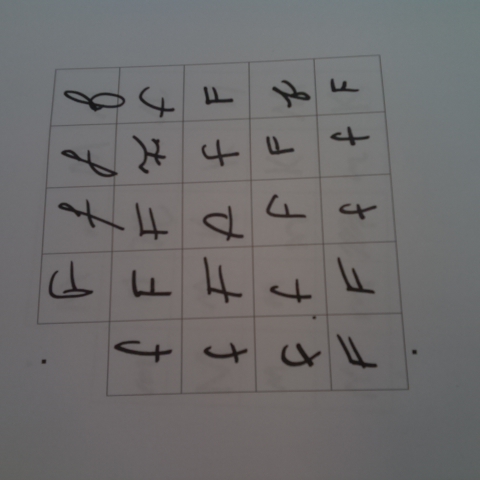 f f F f F
f F f F f
f F f F f
F F F f F
f f f F